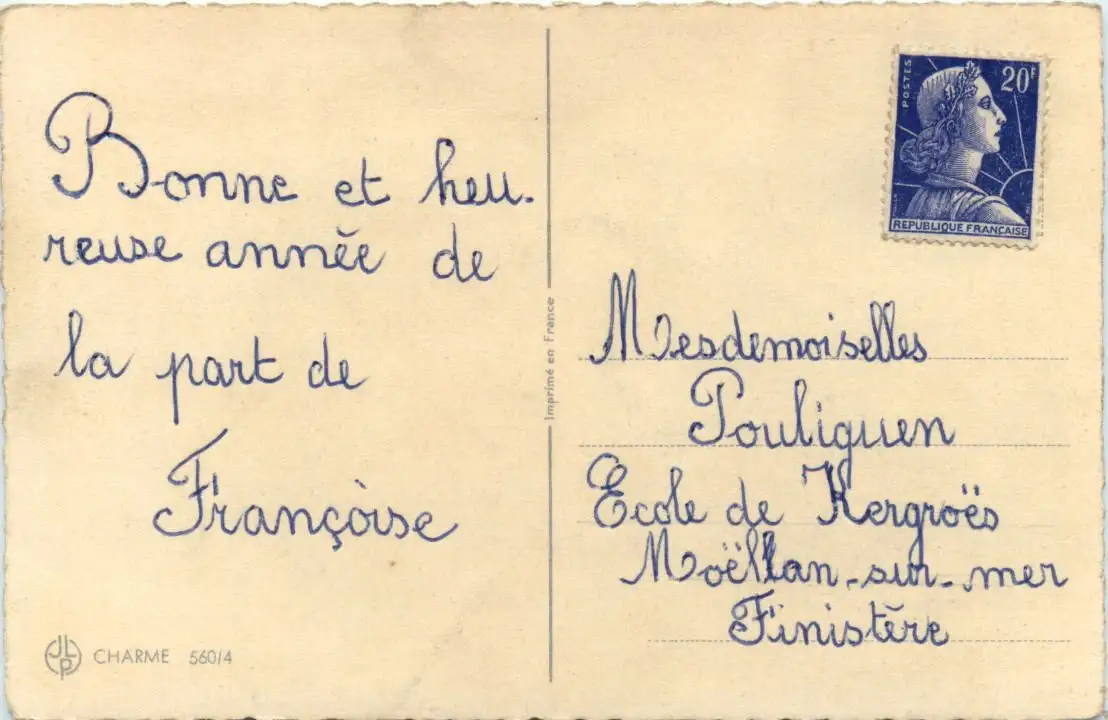 Bonne et heu-
reuse année de
la part de
Françoise
JLP CHARME 560/4
Imprimé en France
POSTES
20F
REPUBLIQUE FRANÇAISE
Mesdemoiselles
Pouliquen
Ecole de Kergroës
Moëllan-sur-mer
Finistère